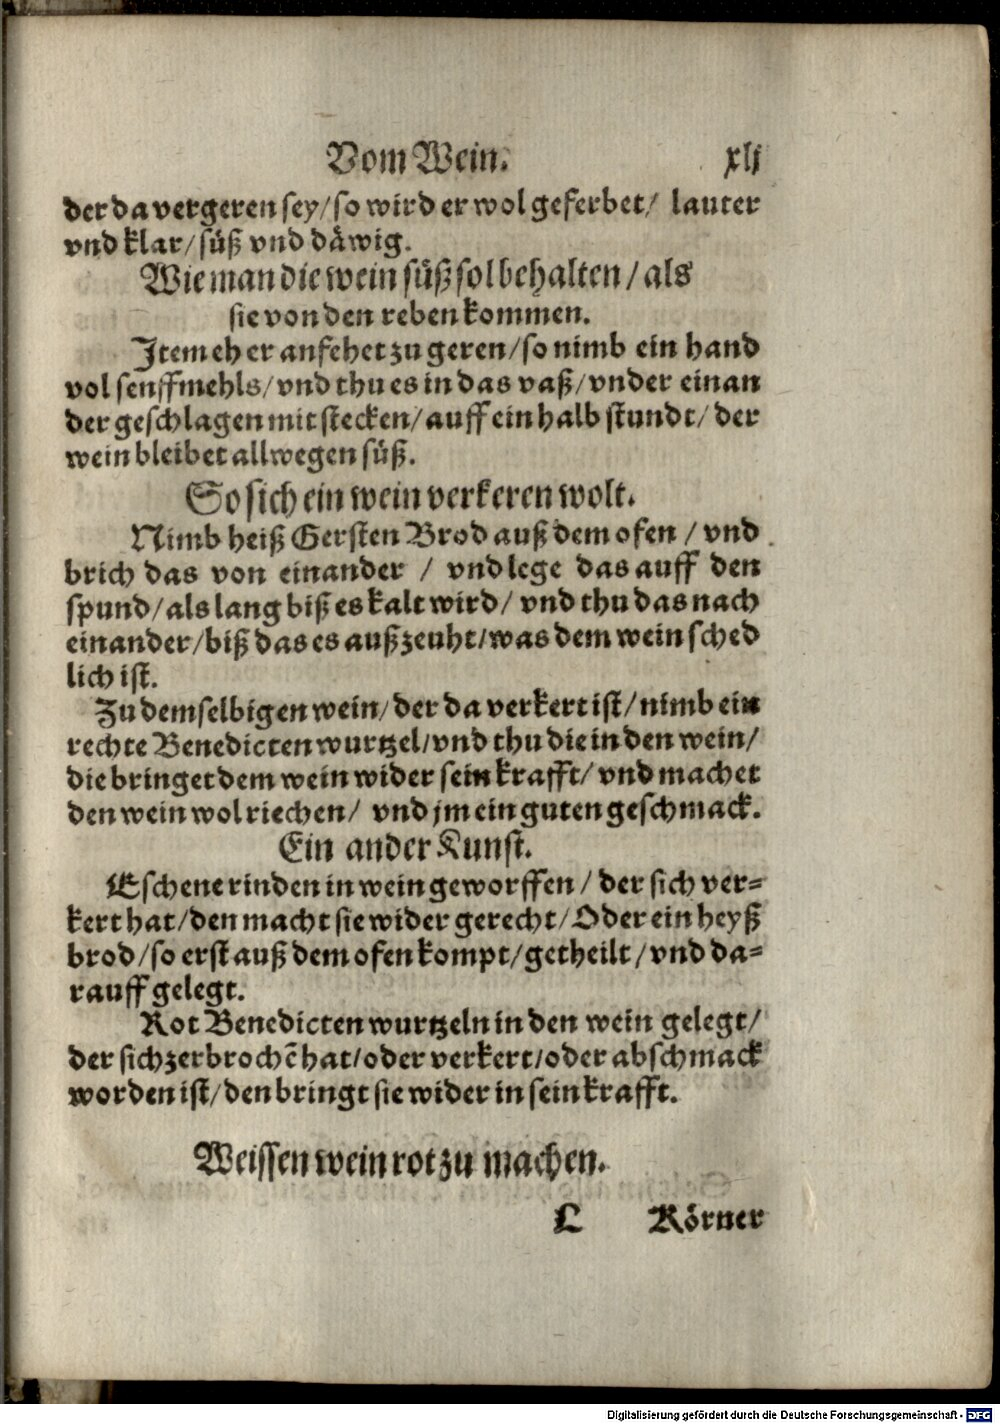 Vom Wein. xlj
der da vergeren sey/so wird er wol geferbet/ lauter
vnd klar/süß vnd däwig.
Wie man die wein süß sol behalten/als
sie von den reben kommen.
Item eh er anfehet zu geren/so nimb ein hand
vol senffmehls/vnd thu es in das vaß/vnder einan
der geschlagen mit stecken/auff ein halb stundt/ der
wein bleibet allwegen süß.
So sich ein wein verkeren wolt.
Nimb heiß Gersten Brod auß dem ofen / vnd
brich das von einander / vnd lege das auff den
spund/als lang biß es kalt wird/ vnd thu das nach
einander/biß das es außzeuht/was dem wein sched
lich ist.
Zu demselbigen wein/der da verkert ist/nimb ein
rechte Benedicten wurtzel/vnd thu die in den wein/
die bringet dem wein wider sein krafft/ vnd machet
den wein wol riechen/ vnd jm ein guten geschmack.
Ein ander Kunst.
Eschene rinden in wein geworffen/ der sich ver-
kert hat/den macht sie wider gerecht/Oder ein heyß
brod/so erst auß dem ofen kompt/getheilt/vnd da-
rauff gelegt.
Rot Benedicten wurtzeln in den wein gelegt/
der sich zerbrochē hat/oder verkert/oder abschmack
worden ist/den bringt sie wider in sein krafft.
Weissen wein rot zu machen.
L Körner
Digitalisierung gefördert durch die Deutsche Forschungsgemeinschaft - DFG